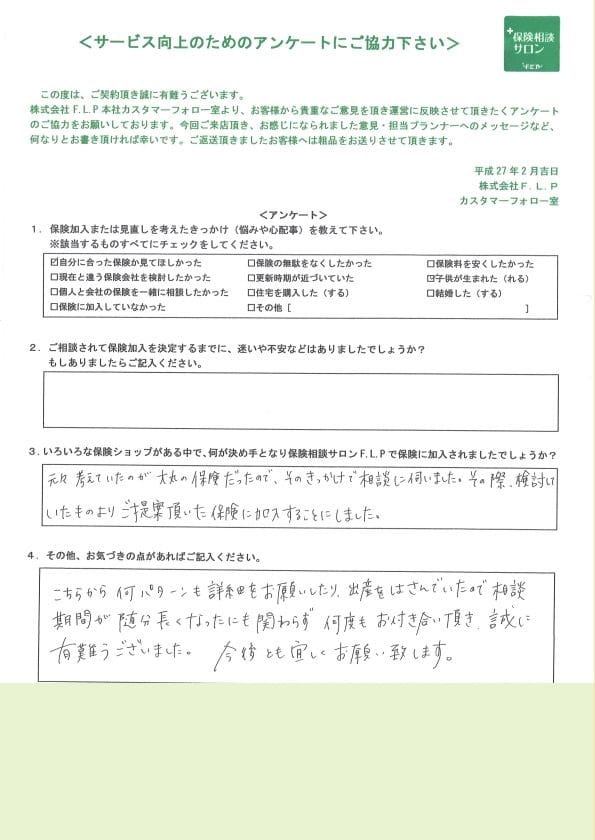 ＜サービス向上のためのアンケートにご協力下さい＞
保険相談
サロン
F.L.P
この度は、ご契約頂き誠に有難うございます。
株式会社Ｆ.Ｌ.Ｐ本社カスタマーフォロー室より、お客様から貴重なご意見を頂き運営に反映させて頂きたくアンケート
のご協力をお願いしております。今回ご来店頂き、お感じになられました意見・担当プランナーへのメッセージなど、
何なりとお書き頂ければ幸いです。ご返送頂きましたお客様へは粗品をお送りさせて頂きます。
平成２７年２月吉日
株式会社Ｆ.Ｌ.Ｐ
カスタマーフォロー室
＜アンケート＞
１．保険加入または見直しを考えたきっかけ（悩みや心配事）を教えて下さい。
※該当するものすべてにチェックをしてください。
☑自分に合った保険か見てほしかった □保険の無駄をなくしたかった □保険料を安くしたかった
□現在と違う保険会社を検討したかった □更新時期が近づいていた ☑子供が生まれた（れる）
□個人と会社の保険を一緒に相談したかった □住宅を購入した（する） □結婚した（する）
□保険に加入していなかった □その他［ ］
２．ご相談されて保険加入を決定するまでに、迷いや不安などはありましたでしょうか？
もしありましたらご記入ください。
３．いろいろな保険ショップがある中で、何が決め手となり保険相談サロンF.L.Pで保険に加入されましたでしょうか？
元々考えていたのが大丸の保険だったので、そのきっかけで相談に伺いました。その際、検討して
いたものよりご提案頂いた保険に加入することにしました。
４．その他、お気づきの点があればご記入ください。
こちらから何パターンも詳細をお願いしたり、出産をはさんでいたので相談
期間が随分長くなったにも関わらず何度もお付き合い頂き、誠に
有難うございました。今後とも宜しくお願い致します。